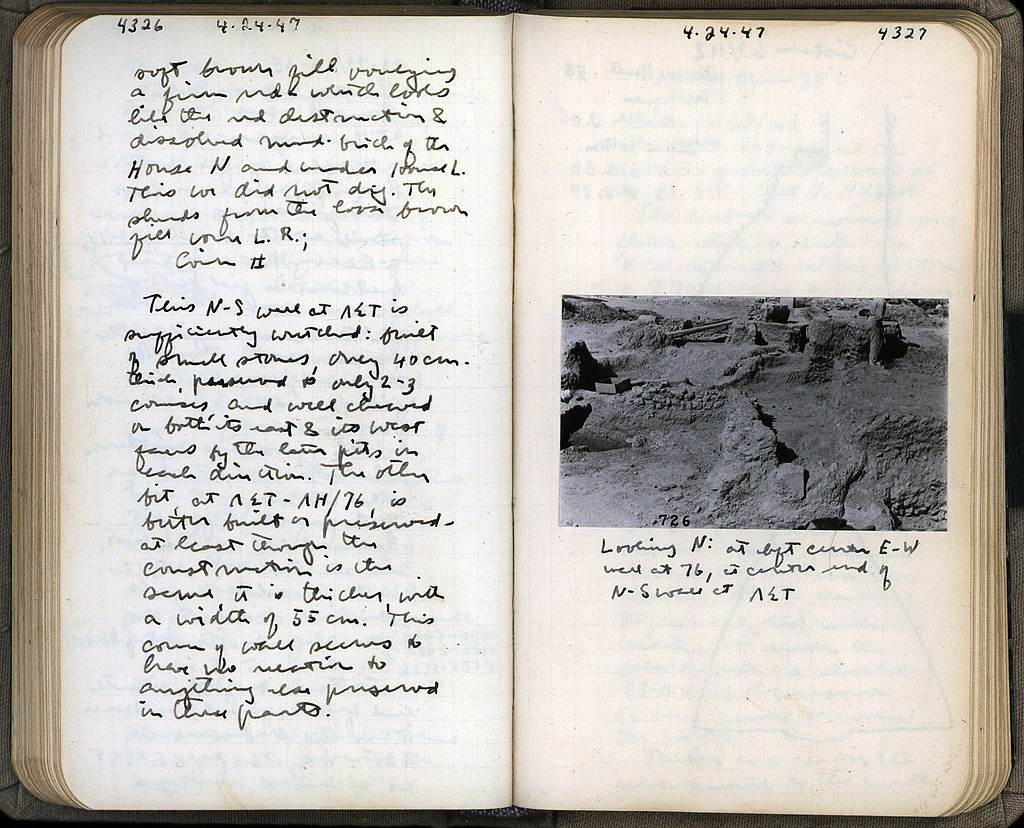 4326 4.24.47
soft brown fill overlying
a firm red which looks
like the red destruction &
dissolved mud-brick of the
House N and under House L.
This we did not dig. The
sherds from the loose brown
fill were L. R.;
Coin #
This N-S wall at ΛΕΤ is
sufficiently wretched: built
of small stones, only 40 cm.
thick, preserved to only 2-3
courses, and well chewed
on both its east & its west
faces by the later pits in
each direction. The other
bit, at ΛΕΤ-ΛΗ/76 is
better built or preserved -
at least though the
construction is the
same it is thicker, with
a width of 55 cm. This
corner of wall seems to
have no relation to
anything else preserved
in these parts.
4.24.47 4327
726
Looking N: at left center E-W
wall at 76, at center end of
N-S wall at ΛΕΤ